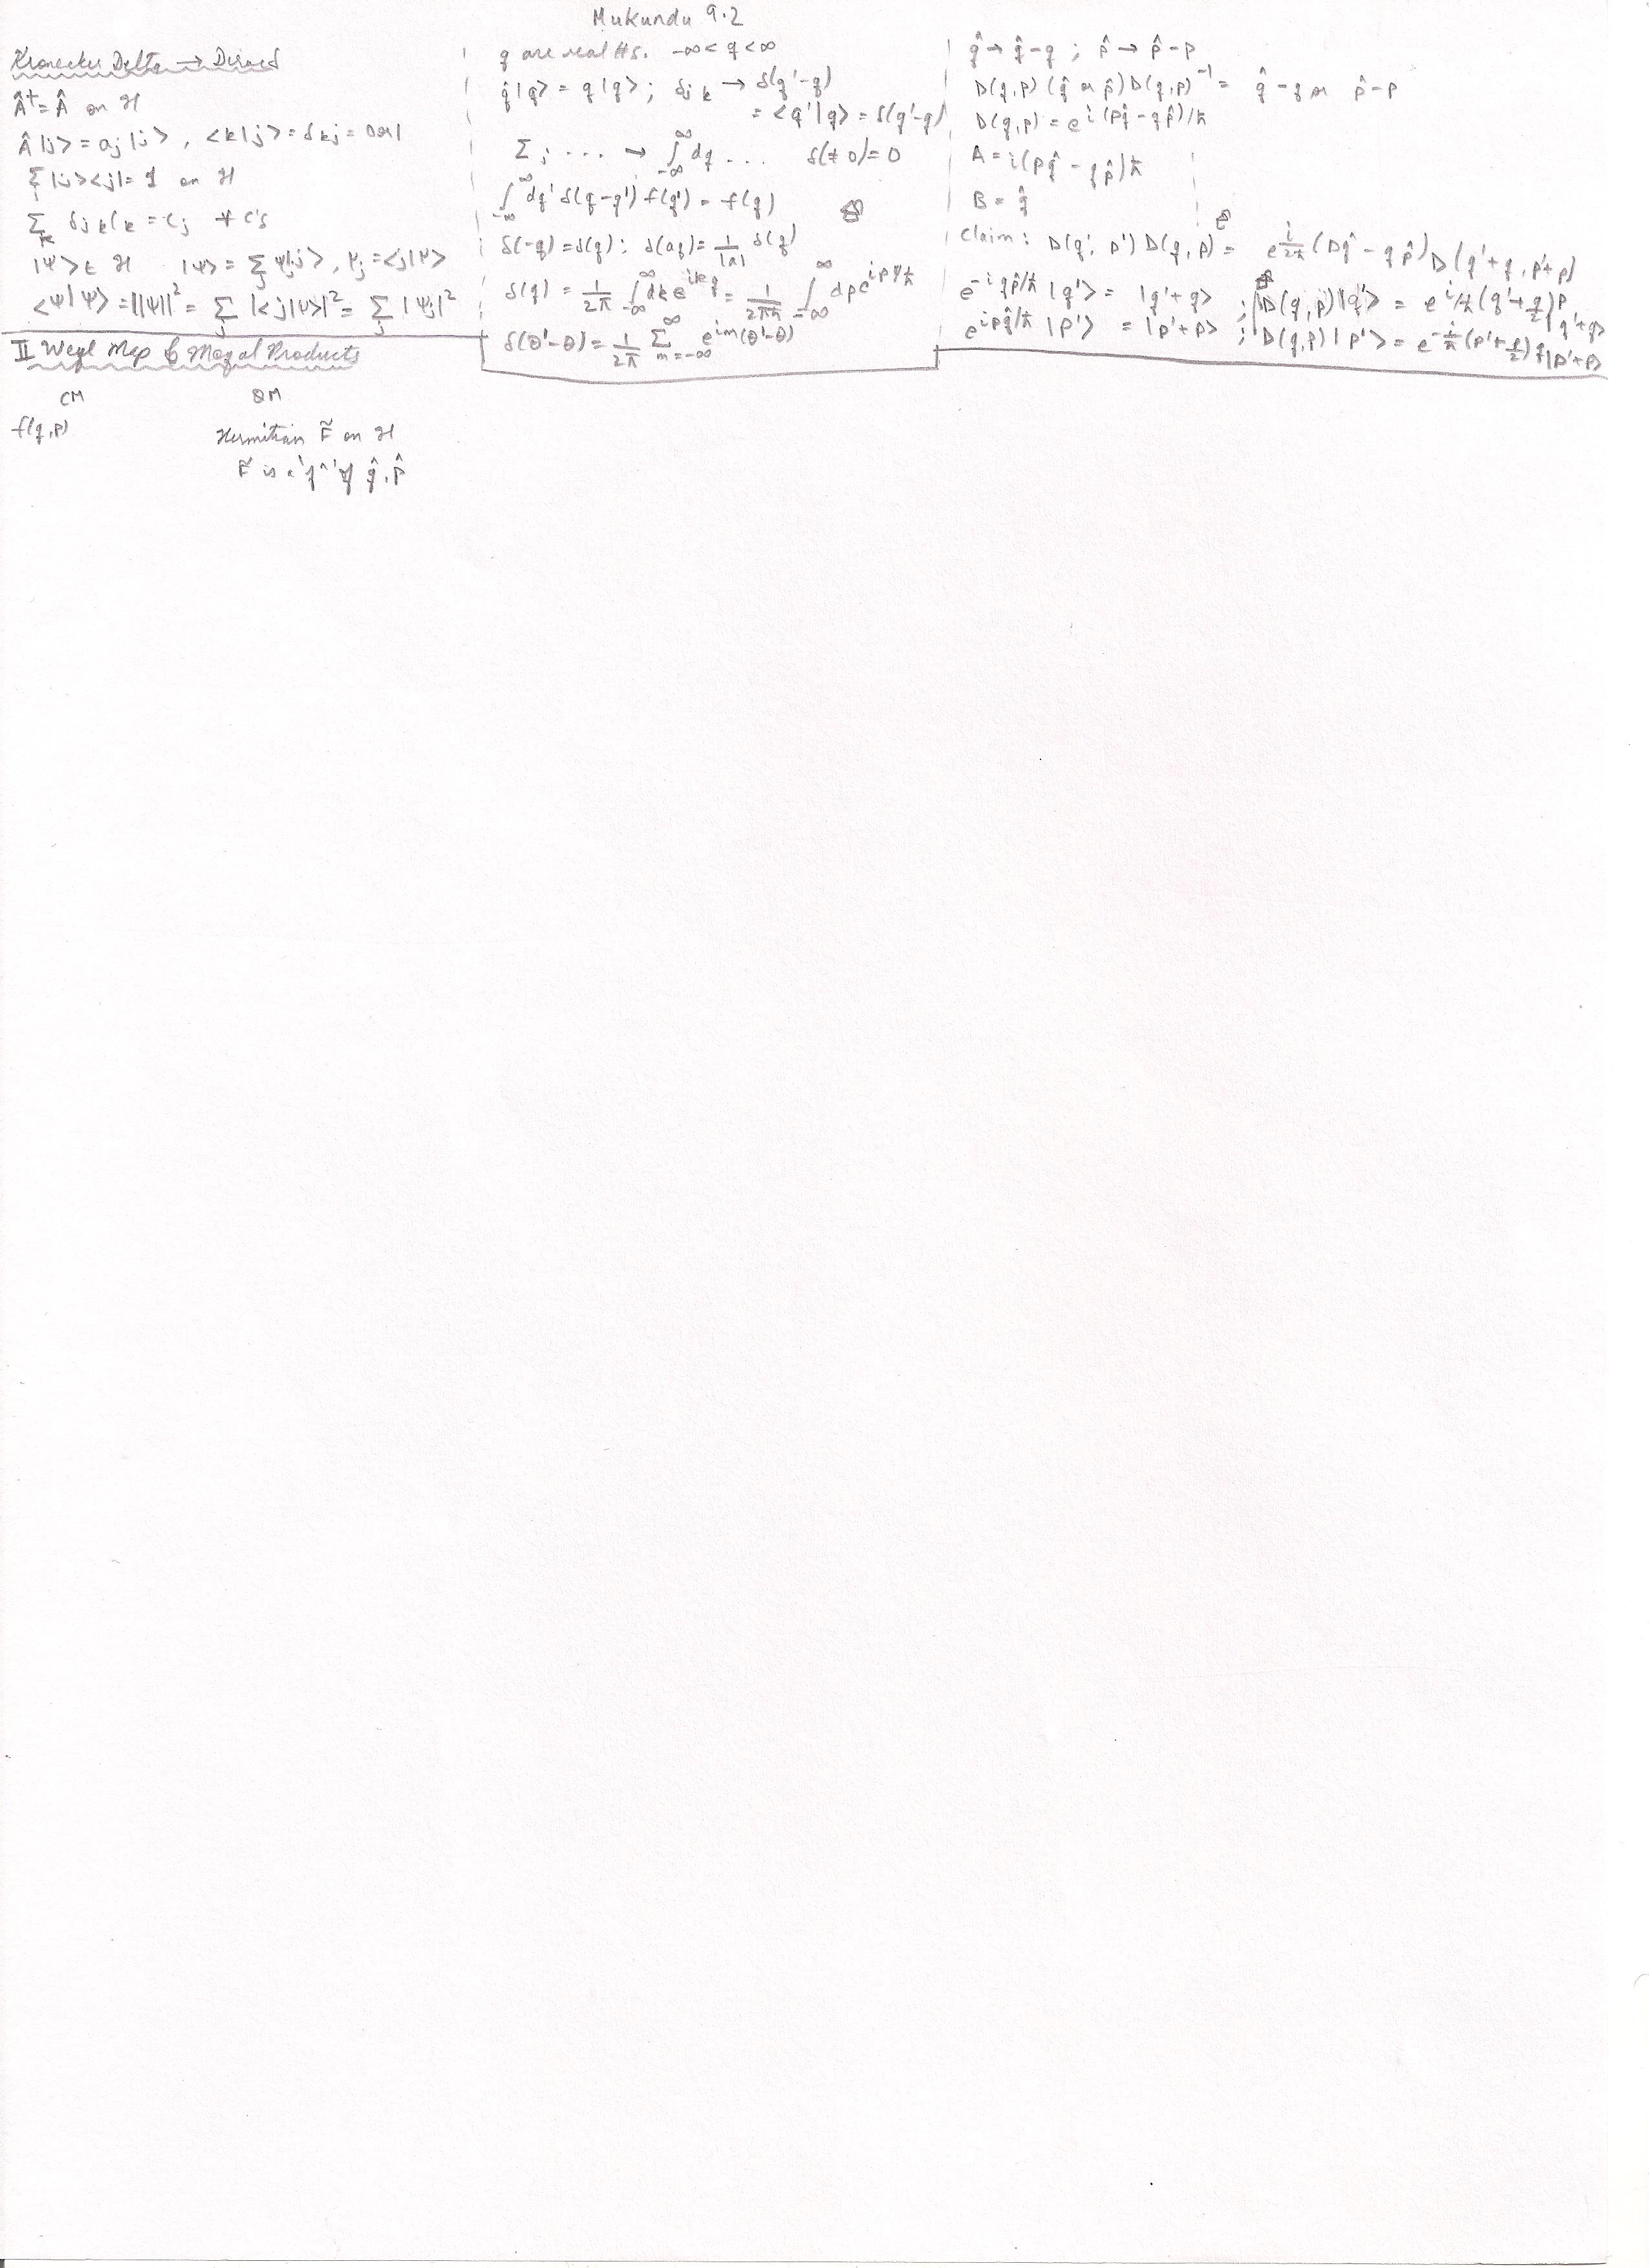 Mukunda 9.2
Kronecker Delta → Dirac δ
Â† = Â on ℋ
Â|j> = aj|j>, <k|j> = δkj = 0 or 1
Σj |j><j| = 1 on ℋ
Σk δjk Ck = Cj ∀ C's
|Ψ> ∈ ℋ |Ψ> = Σj Ψj|j>, Ψj = <j|Ψ>
<Ψ|Ψ> = ||Ψ||² = Σj |<j|Ψ>|² = Σj |Ψj|²
q are real #s. -∞ < q < ∞
q̂|q> = q|q>; δjk → δ(q'-q)
= <q'|q> = δ(q'-q)
Σj ... → ∫_{-∞}^{∞} dq ... δ(≠0) = 0
∫_{-∞}^{∞} dq' δ(q-q') f(q') = f(q)
δ(-q) = δ(q): δ(aq) = 1/|a| δ(q)
δ(q) = 1/2π ∫_{-∞}^{∞} dk e^{ikq} = 1/2πħ ∫_{-∞}^{∞} dp e^{ipq/ħ}
δ(θ'-θ) = 1/2π Σ_{m=-∞}^{∞} e^{im(θ'-θ)}
q̂ → q̂-q ; p̂ → p̂-p
D(q,p) (q̂ or p̂) D(q,p)⁻¹ = q̂-q or p̂-p
D(q,p) = e^{i(pq̂-qp̂)/ħ}
A = i(pq̂ - qp̂)ħ
B = q̂
Claim: D(q', p') D(q,p) = e^{i/2ħ}(pq̂ - qp̂) D(q'+q, p'+p)
e^{-iqp̂/ħ} |q'> = |q'+q> ; D(q,p)|q'> = e^{i/ħ (q'+q/2)p} |q'+q>
e^{ipq̂/ħ} |p'> = |p'+p> ; D(q,p)|p'> = e^{-i/ħ (p'+p/2)q} |p'+p>
II Weyl Map & Moyal Products
CM QM
f(q,p) Hermitian F̃ on ℋ
F̃ is a 'fⁿ' of q̂, p̂